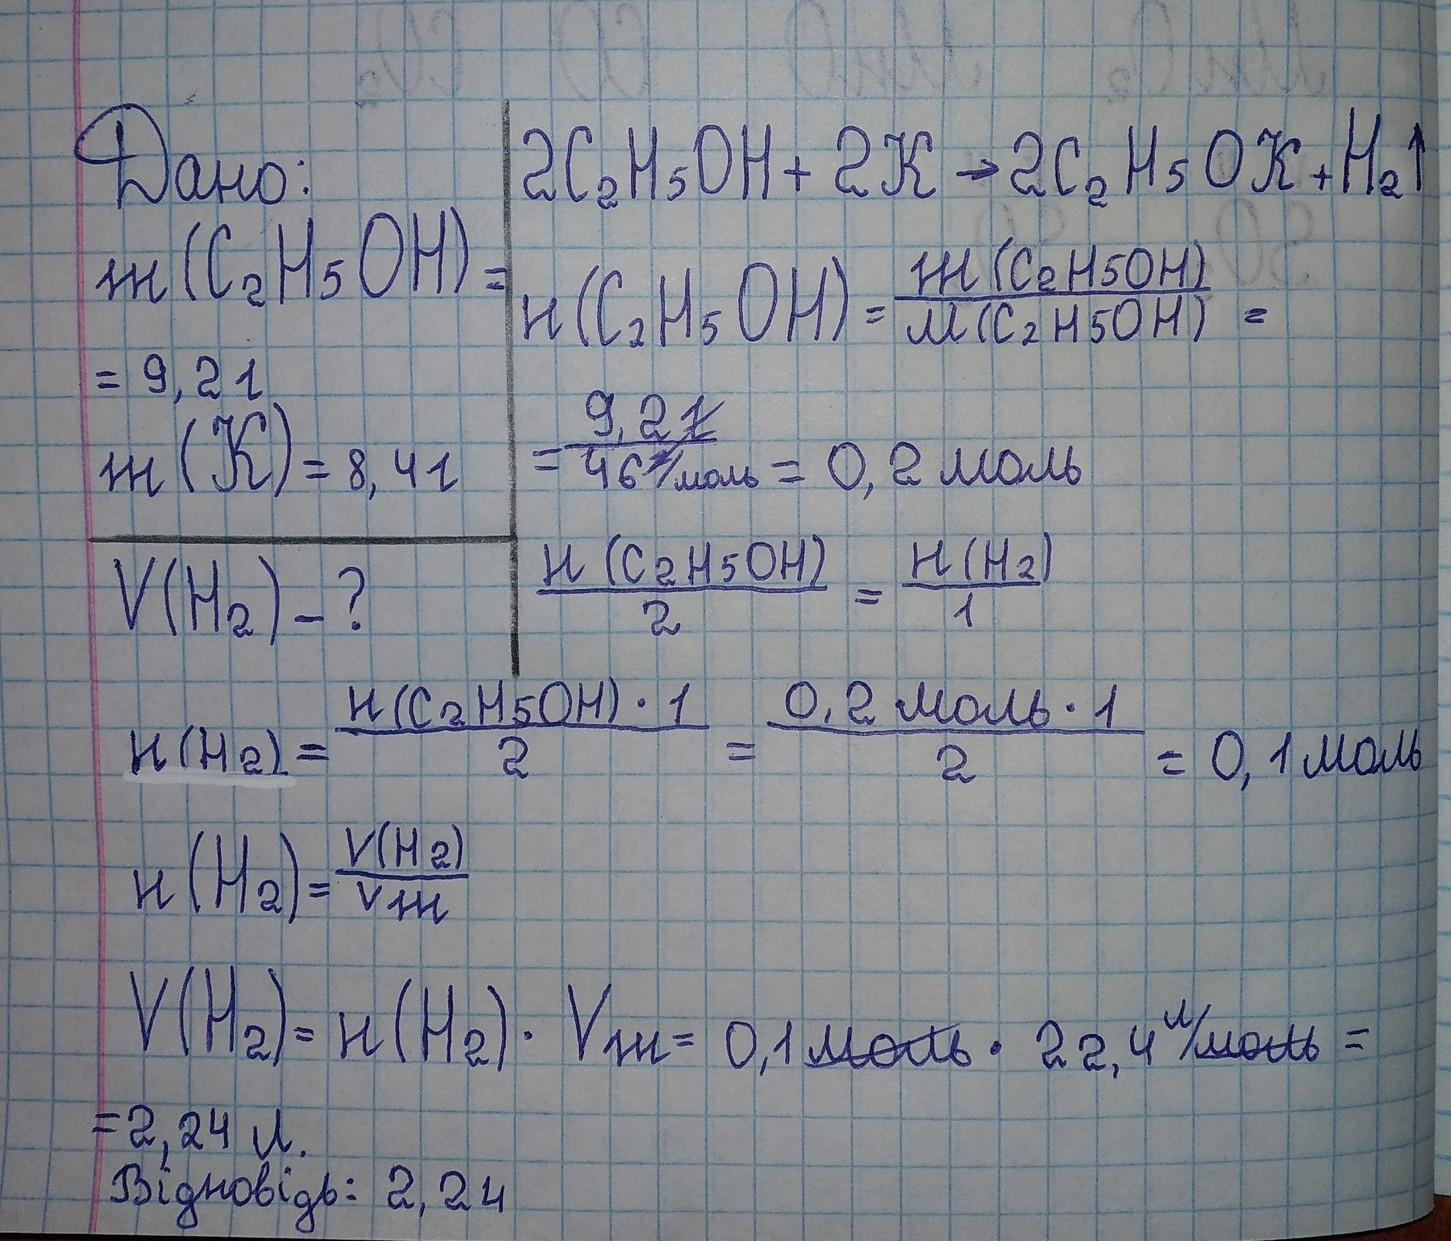 Дано:
m(C₂H₅OH) =
= 9,2г
m(K) = 8,4г
V(H₂) – ?
2C₂H₅OH + 2K → 2C₂H₅OK + H₂↑
н(C₂H₅OH) = m(C₂H₅OH) / M(C₂H₅OH) =
= 9,2г / 46г/моль = 0,2 моль
н(C₂H₅OH) / 2 = н(H₂) / 1
н(H₂) = н(C₂H₅OH) · 1 / 2 = 0,2 моль · 1 / 2 = 0,1 моль
н(H₂) = V(H₂) / Vm
V(H₂) = н(H₂) · Vm = 0,1 моль · 22,4 л/моль =
= 2,24 л.
Відповідь: 2,24